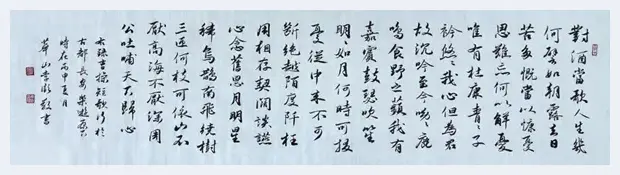 對酒當歌人生幾
何譬如朝露去日
苦多慨當以慷憂
思難忘何以解憂
唯有杜康青々子
衿悠々我心但為君
故沉吟至今呦々鹿
鳴食野之蘋我有
嘉賓鼓瑟吹笙
明々如月何時可掇
憂從中來不可
斷絕越陌度阡枉
用相存契闊談讌
心念舊恩月明星
稀烏鵲南飛繞樹
三匝何枝可依山不
厭高海不厭深周
公吐哺天下歸心
右錄曹操短歌行於
古都長安樂遊
時在丙申夏月
華山李書